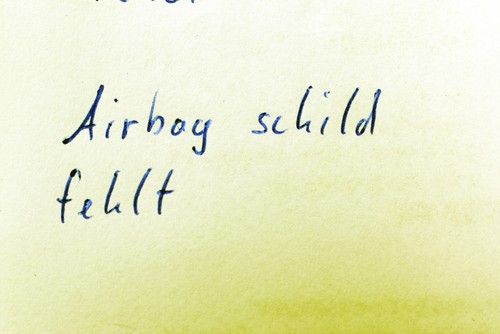 Airbag schild
fehlt